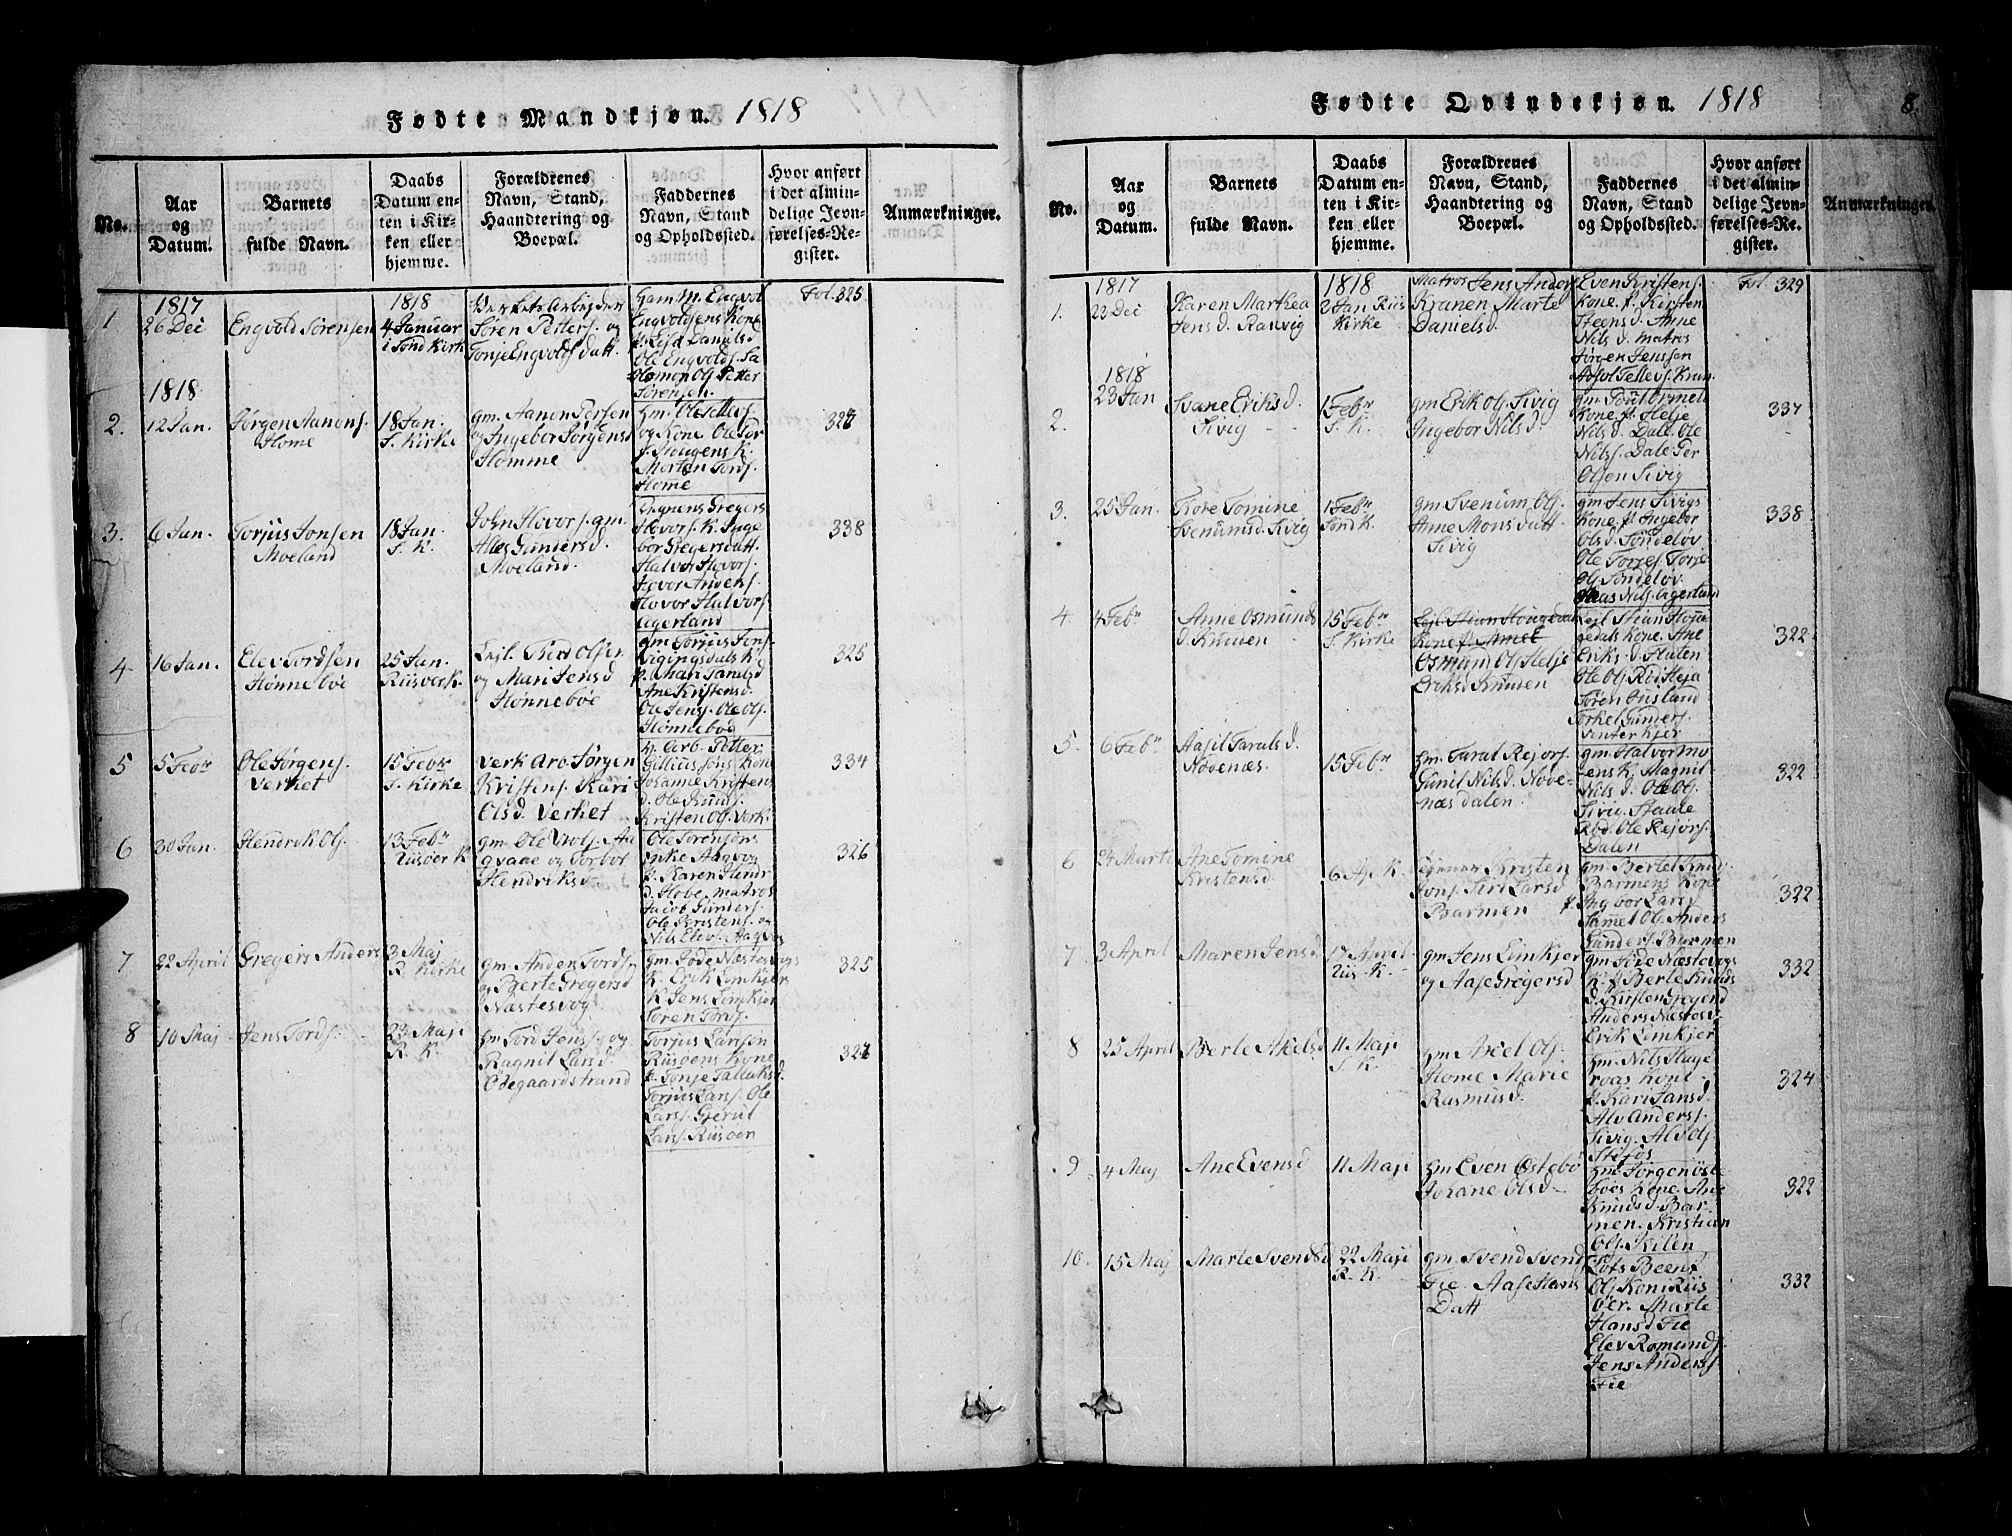 Fødte Mandkjøn. 1818
No.
Aar
og
Datum.
Barnets
fulde Navn.
Daabs
Datum en-
ten i Kir-
ken eller
hjemme.
Forældrenes
Navn, Stand,
Haandtering og
Boepæl.
Faddernes
Navn, Stand
og Opholdssted.
Hvor anført
i det almin-
delige Jevn-
førelses-Re-
gister.
Anmærkninger.
1
1817
26 Dec
Engvold Sørensen
1818
4 Januar
i Sønd Kirk
Verkets arbejder
Søren Petters. og
Tonje Engvolds datt.
Gam M. Engvol
Engvoldsens Kone
p. Lisd Danielsd
Ole Engvolds. Sa
lomon Ols Petter
Sørensen.
Fol. 325
1818
2.
12 Jan.
Jørgen Aanons.
Home
18 Jan.
S. Kirke
gm. Aanon Torsen
og Ingebor Jørgensd
Homme
og Kone Ole Tor
Morten Tords.
Home
328
3.
6 Jan.
Torjus Jonsen
Moeland
18 Jan.
S. K.
John Hovors. gm.
Alles Gundersd.
Moeland.
Gregers
Hovors. K. Inge
bor Gregersdatt.
Halvor Hovors.
Hovor Anders.
Hovor Halvors.
Agerland
338
4
16 Jan.
Elev Tordsen
Hønneboe
25 Jan.
Riisver K.
Lejl. Tord Olsen
og Mari Jensd
Hønneboe
gm Torjus Jens.
Vigingsdals K.
p. Mari Tarulsd
Ane Kristensd.
Ole Jens. Ole Ols.
Hønnebod
325
5
5 Febr
Ole Jørgens.
Verket
15 Febr
S. Kirke
Verk Arb Jørgen
Kristens. Kari
Olsd. Verket
V. Arb. Petter
Gilliussøns Kone
Johanne Kristens
d. Ole Knuds.
Kristen Ols. Verk.
334
6
30 Jan.
Hendrik Ols.
13 Febr
Riisøer K
gm. Ole Wols. Aa
gvaae og Torbor
Hendriksd
Ole Sørensøns
enke Aagvog
p. Karen Hendr
d. Hobe. matros
Jacob Gunders.
Ole Kristens. og
Nils Elevs. Aagvog
326
7
22 April
Gregers Anders
3 Maj
R. Kirke
gm. Anders Tords.
og Berte Gregersd
Næstesvog
gm. Jode Næstesvogs
K. Erik Limkjers
K. Jens Limkjer
Søren Tords.
325
8
10 Maj
Jens Tords.
22 Maji
R. K.
gm Tord Jens. og
Ragnil Larsd.
Ødegaardstrand
Torjus Larsøn
Riisøens Kone
p. Tonje Talluksd.
Torjus Lars. Ole
Lars. Gjerul
Lars. Riisøen
328
Fødte Qvindekjøn. 1818
8.
No.
Aar
og
Datum.
Barnets
fulde Navn.
Daabs
Datum en-
ten i Kir-
ken eller
hjemme.
Forældrenes
Navn, Stand,
Haandtering og
Boepæl.
Faddernes
Navn, Stand
og Opholdssted.
Hvor anført
i det almin-
delige Jevn-
førelses-Re-
gister.
Anmærkninger.
1.
1817
23 Dec
Karen Marthea
Jens d. Ranvig
1818
2 Jan Riis
Kirke
Matros Jens Anders
Kranen Marte
Danielsd.
Even Kristens.
Kone p. Kirsten
Steensd. Anne
Nils d. matros
Jørgen Jenssen
Adsol Tellevs. Kran.
Fol. 329
2.
1818
23 Jan
Svane Eriksd.
Sivig
1 Febr
S. K.
gm Erik Ols. Sivig
Ingebor Nilsd.
Kone p. Helje
Nilsd. Dale. Ole
Nils. Dale Per
Olsen Sivig
337
3.
25 Jan.
Tore Tomine
Svenumsd. Sivig
1 Febr
Sønd K.
gm Svenum Ols
Anne Mons datt
Sivig
gm Jens Sivigs
Kone p. Ingebor
Olsd. Søndeløv
Ole Torjes Torje
Ols. Søndeløv.
Klaas Nils. Agerland
338
4.
4 Febr
Anne Osmunds
d. Knuden
15 Febr
S. Kirke
Lejl. Stian Hougedals
Kone p. Annel
Osmun Ols Helje
Eriksd Knuden
Lejl Stian Houg
gedals Kone. Ane
Eriks. d. Haslen
Ole Ols. Rød Helja
Søren Lusland
Torkel Gunders.
Sinterkjer
322
5.
6 Febr
Aasil Tarulsd.
Novenæs.
15 Febr
gm. Tarul Rejers.
Gunil Nilsd. Nove-
næs dalen.
gm Halvor Mo
lens K. Magnil
Nils d. Ole Ols.
Sivig. Staale
Rød. Ole Rejors.
Dalen
322
6
24 Marti
Ane Tomine
Kristensd
6 Ap. K
Kristen
Jons. Siri Larsd
Barmen
gm Bertel Knuds
Barmens Kone
p. Ingebor Larsd
Samel Ols. Anders
Gunders. Barmen
322
7
3 April
Maren Jensd.
17 April
Riis. K.
gm Jens Limkjer
og Aase Gregersd
gm Jode Næstevogs
K. p. Berte Knuds
d. Kirsten Gregersd
Anders Næstesv.
Erik Limkjer
332
8
25 April
Berte Axelsd
11 Maji
S. K.
gm Axel Ols.
Home Marie
Rasmusd.
gm. Nils Hage
roas Kone
p. Kari Jansd.
Alv Anders.
Sivig. Alv Ols.
Stifos
324
9
4 Maj
Ane Evensd
11 Maji
gm Even Østebø
Johane Olsd
gm Jørgen Øste
boes Kone. Ane
Knudsd. Bar
men. Kristian
Ols. Kilen
322
10.
15 Maj
Marte Svendsd
22 Maji
R. K.
gm. Svend Svend
Fie. Aase Hans
Datt
Lots Beens
Ols Kone Riis
øer. Marte
Hansd Fie
Elev Romunds.
Jens Anders
Fie
332